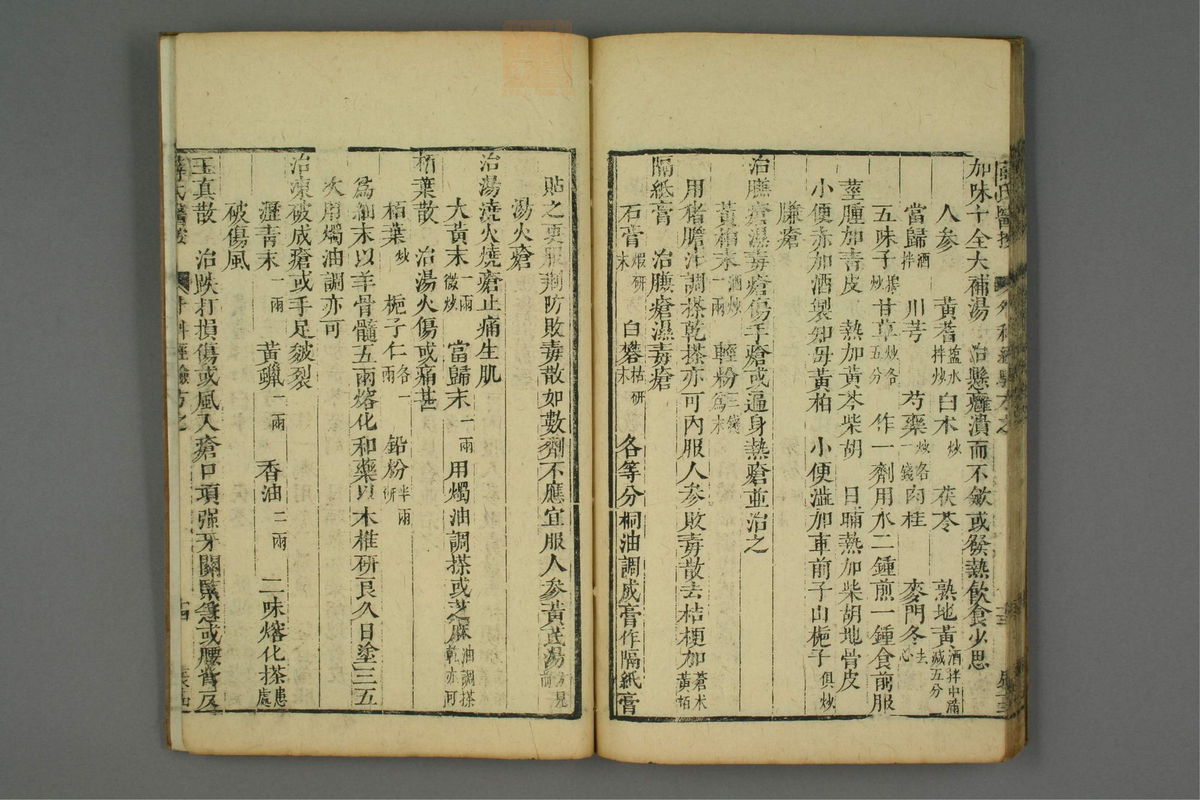 加味十全大補湯 治懸癰潰而不斂或發熱飲食少思
人參 黃蓍鹽水拌炒 白朮炒 茯苓 熟地黃酒拌中滿減五分
當歸酒拌 川芎 芍藥炒各一錢 肉桂 麥門冬去心
五味子 甘草炒各五分 作一劑用水二鍾煎一鍾食前服
莖腫加青皮 熱加黃芩柴胡 日晡熱加柴胡地骨皮
小便赤加酒製知母黃柏 小便澁加車前子山梔子俱炒
臁瘡
治臁瘡濕毒瘡傷手瘡或遍身熱瘡並治之
黃柏末酒炒一兩 輕粉三錢為末
用猪膽汁調搽乾搽亦可內服人參敗毒散去桔梗加蒼朮黃栢
隔紙膏 治臁瘡濕毒瘡
石膏煅研末 白礬枯研末 各等分桐油調成膏作隔紙膏
貼之更服荆防敗毒散如數劑不應宜服人參黃芪湯方見前
湯火瘡
治湯澆火燒瘡止痛生肌
大黃末一兩微炒 當歸末一兩 用燭油調搽或芝麻油調搽乾亦可
栢葉散 治湯火傷或痛甚
栢葉炒 梔子仁各一兩 鉛粉半兩研
為細末以羊骨髓五兩熔化和藥以木椎研良久日塗三五
次用燭油調亦可
治凍破成瘡或手足皴裂
瀝青末一兩 黃蠟一兩 香油二兩 二味熔化搽患處
破傷風
玉真散 治跌打損傷或風入瘡口項强牙關緊急或腰背反
薛氏醫按 外科經驗方之